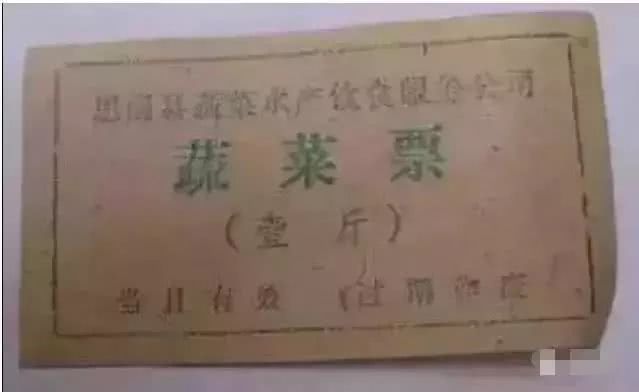 思南县蔬菜水产饮食服务公司
蔬菜票
(壹斤)
当日有效 (过期作废